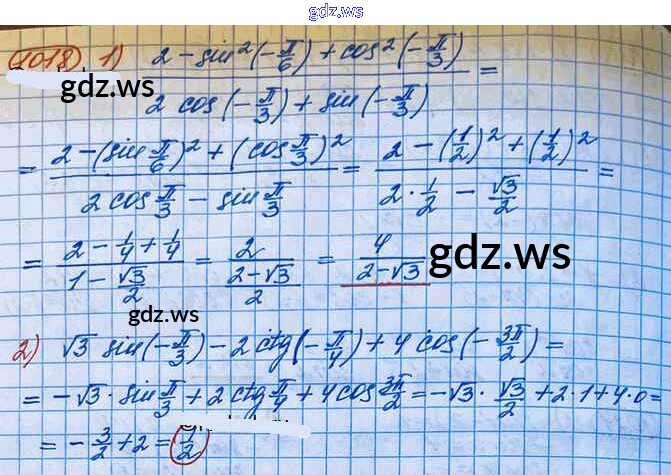 gdz.ws
1018. 1) (2 - sin²(-π/6) + cos²(-π/3)) / (2 cos(-π/3) + sin(-π/3)) =
gdz.ws
= (2 - (sin π/6)² + (cos π/3)²) / (2 cos π/3 - sin π/3) = (2 - (1/2)² + (1/2)²) / (2 · 1/2 - √3/2) =
= (2 - 1/4 + 1/4) / (1 - √3/2) = 2 / ((2-√3)/2) = 4 / (2-√3)
gdz.ws
gdz.ws
2) √3 sin(-π/3) - 2 ctg(-π/4) + 4 cos(-3π/2) =
= -√3 · sin π/3 + 2 ctg π/4 + 4 cos 3π/2 = -√3 · √3/2 + 2·1 + 4·0 =
= -3/2 + 2 = 1/2